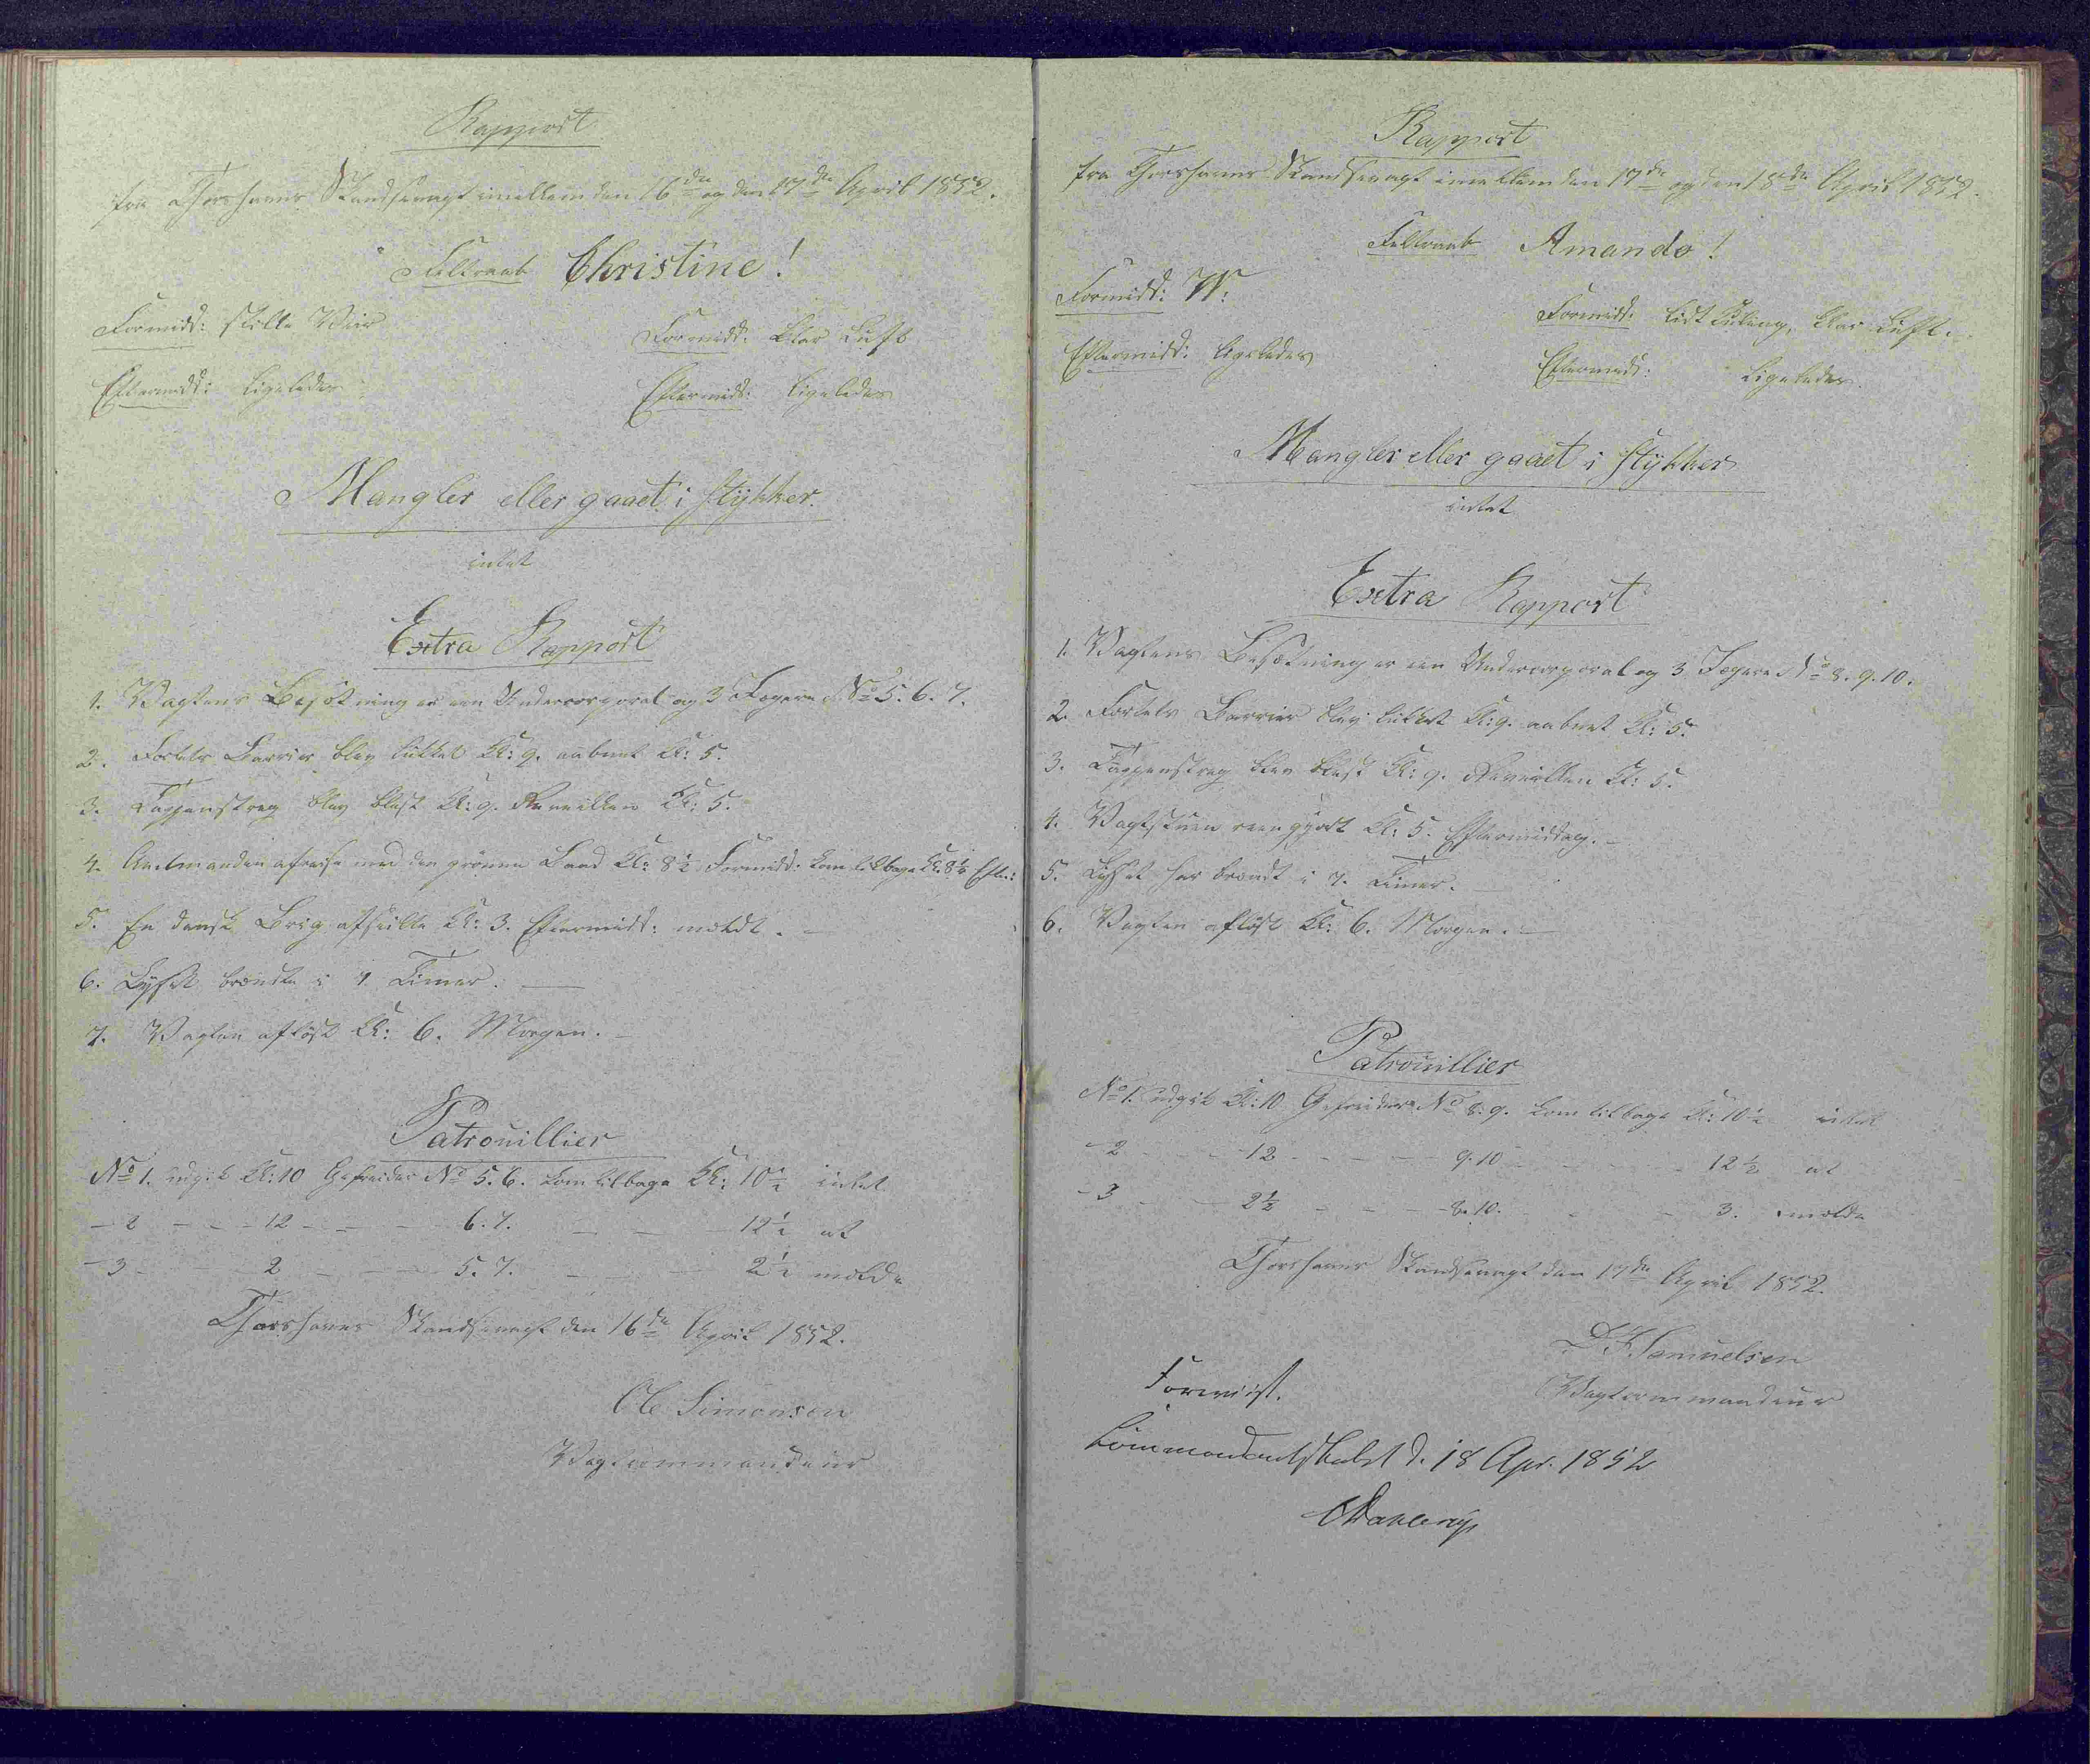 Rapport
fra Thorshavns Skandsevagt imellem den 16de og den 17de April 1852.
Feltraab Christine!
Formidd: stille Veir
Formidd: klar Luft
Eftermidd: ligeledes
Eftermidd: ligeledes
Mangler eller gaaet i stÿkker.
intet
Extra Rapport
1. Vagtens Besætning er een Undercorporal og 3 Jægere No 5. 6. 7.
2. Fortets Barrier blev lukket Kl: 9. aabnet Kl: 5.
3. Tappenstreg blev blæst Kl: 9. Reveillen Kl: 5.
4. Amtmanden afreiste med den grønne Baad Kl: 8½ Formidd: kom tilbage Kl. 8½ Eftm:
5. En dansk Brig afseilte Kl: 3. Eftermidd: meldt. —
6. Lyset brændte i 7 Timer. —
7. Vagten afløst Kl: 6. Morgen. —
Patrouillier
No 1. udgik Kl: 10 Gefreider No 5. 6. kom tilbage Kl: 10½ intet
- 2 - - - 12 - - - 6. 7. - - - 12½ at
- 3 - - - 2 - - - 5. 7. - - - 2½ melde
Thorshavns Skandsevagt den 16de April 1852.
Ole Simonsen
Vagtcommandeur
Rapport
fra Thorshavns Skandsevagt imellem den 17de og den 18de April 1852.
Feltraab Amanda!
Formidd: W:
Formidd: lidt Kuling, klar Luft.
Eftermidd: ligeledes
Eftermidd: ligeledes.
Mangler eller gaaet i stÿkker
intet
Extra Rapport
1. Vagtens Besætning er een Undercorporal og 3 Jægere No 8. 9. 10.
2. Fortets Barrier blev lukket Kl: 9. aabnet Kl: 5.
3. Tappenstreg blev blæst Kl: 9. Reveillen Kl: 5.
4. Vagtstuen reengjort Kl: 5. Eftermiddag. —
5. Lyset har brændt i 7. Timer. —
6. Vagten afløst Kl: 6. Morgen. —
Patrouillier
No 1. udgik Kl: 10 Gefreider No 8. 9. kom tilbage Kl: 10½ intet
- 2 - - - 12 - - - 9. 10 - - - 12½ at
- 3 - - - 2½ - - - 8. 10. - - - 3. melde
Thorshavns Skandsevagt den 17de April 1852.
Samuelsen
Vagtcommandeur
Foreviist.
Commandantskabet d. 18 Apr. 1852
Dahlerup